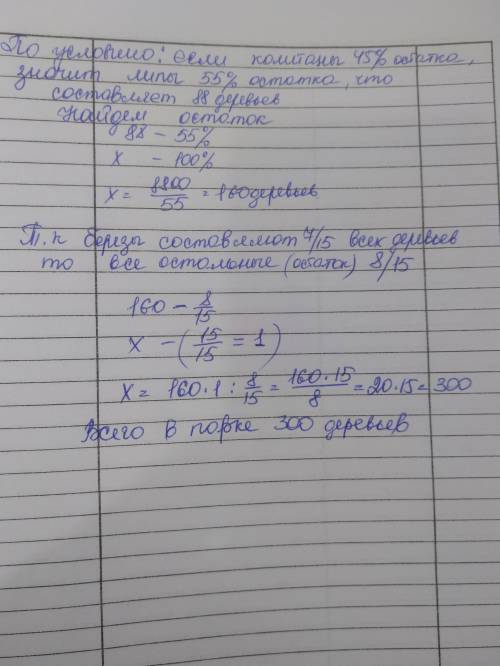 По условию: если каштаны 45% остатка,
значит липы 55% остатка, что
составляет 88 деревьев
Найдем остаток
88 - 55%
x - 100%
x = 8800/55 = 160 деревьев
Т.к березы составляют 7/15 всех деревьев
то все остальные (остаток) 8/15
160 - 8/15
x - (15/15 = 1)
x = 160·1 : 8/15 = 160·15/8 = 20·15 = 300
Всего в парке 300 деревьев